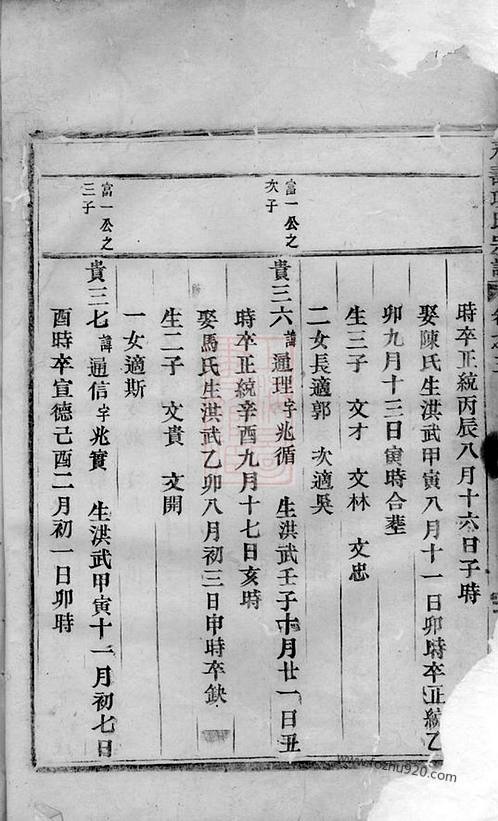 時卒正統丙辰八月十六日子時
娶陳氏生洪武甲寅八月十一日卯時卒正統乙
卯九月十三日寅時合塟
生三子 文才 文林 文忠
二女長適郭 次適吳
富一公之
次子
貴三六諱通理字兆循 生洪武壬子十月廿一日丑
時卒正統辛酉九月十七日亥時
娶馬氏生洪武乙卯八月初三日申時卒缺
生二子 文貴 文開
一女適斯
富一公之
三子
貴三七諱通信字兆實 生洪武甲寅十一月初七日
酉時卒宣德己酉二月初一日卯時
www.fozhu920.com